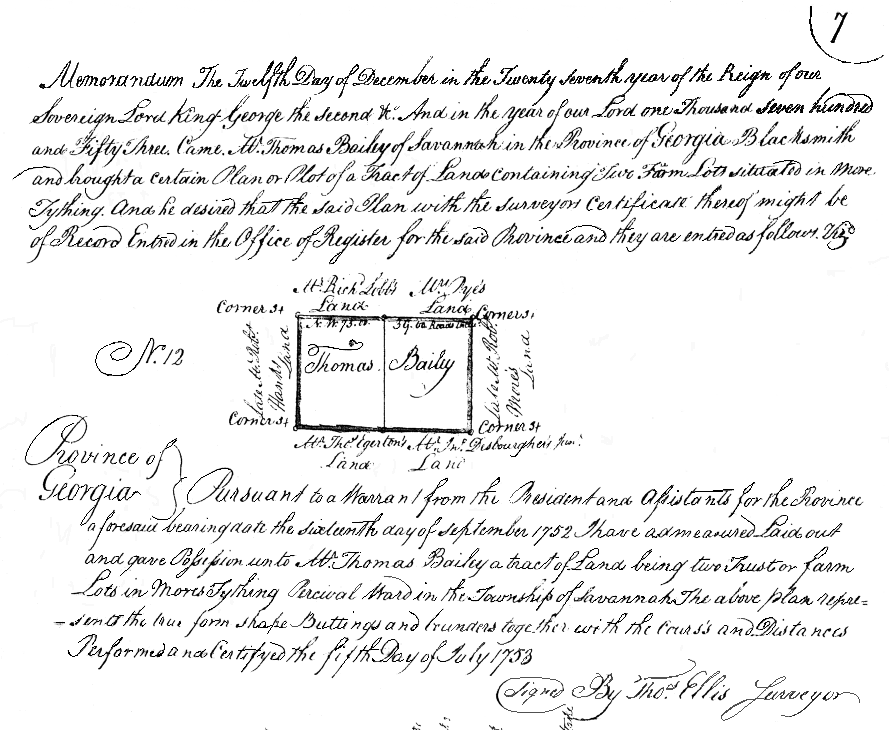 7
Memorandum The Twelfth Day of December in the Twenty seventh year of the Reign of our
Sovereign Lord King George the second &c. And in the year of our Lord one Thousand seven hundred
and Fifty Three. Came Mr. Thomas Bailey of Savannah in the Province of Georgia Blacksmith
and brought a certain Plan or Plot of a Tract of Land containing Two Farm Lots situated in More
Tything. And he desired that the said Plan with the surveyors Certificate thereof might be
of Record Entred in the Office of Register for the said Province and they are entred as follows. Vizt.
Mr. Richd. Lobb's Land
Mrs. Pye's Land
Corner St
Corner St
N. W. 75.
Late Mr. Robt. Hank's Land
Thomas Bailey
Late Mr. Rob. More's Land
N. 12
Corner St
Corner St
Mr. Tho. Egerton's Land
Mr. Jno. Disbourgher's Junr. Land
Province of
Georgia
Pursuant to a Warrant from the President and Assistants for the Province
aforesaid bearing date the sixteenth day of September 1752 I have admeasured Laid out
and gave Possession unto Mr. Thomas Bailey a tract of Land being two Trust or farm
Lots in Mores Tything Percival Ward in the Township of Savannah The above plan repre=
=sents the true form shape Buttings and bounders together with the Cours's and Distances
Performed and Certifyed the fifth Day of July 1753
Signed By Thos. Ellis Surveyor